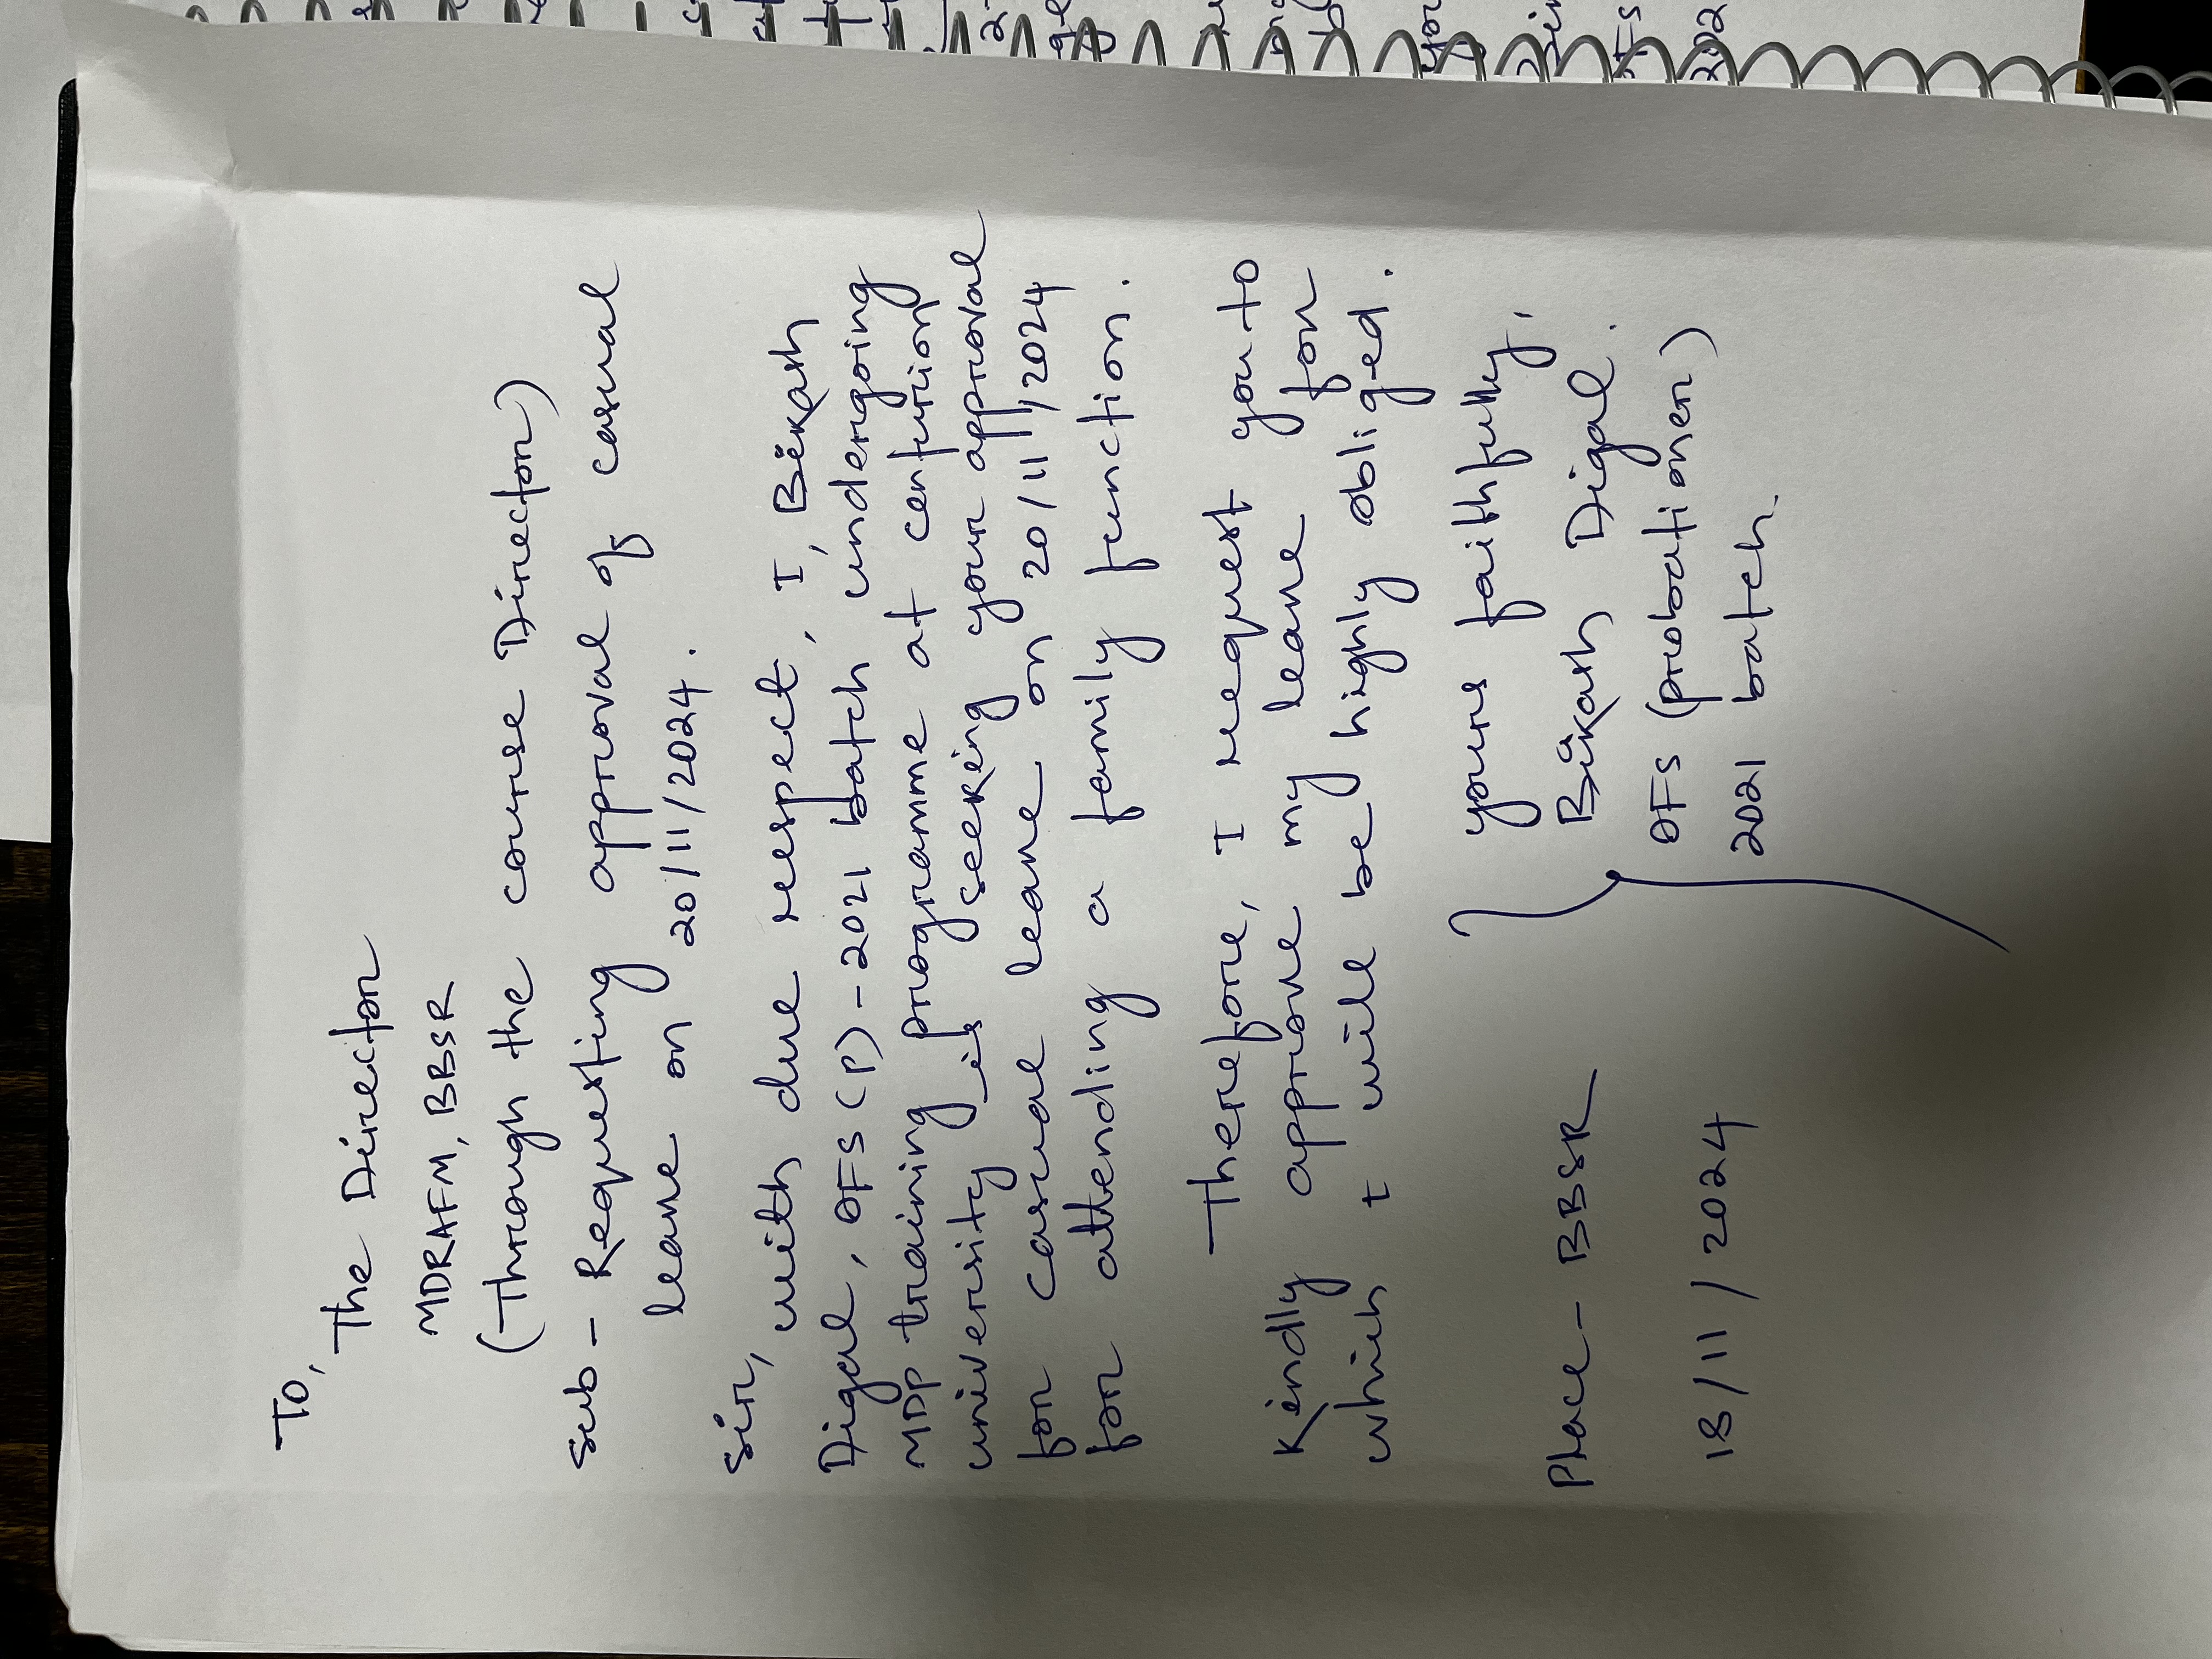 To,
The Director
MDRAFM, BBSR
(Through the course Director)
Sub - Requesting approval of casual
leave on 20/11/2024.
Sir,
with due respect, I, Bikash
Digal, OFS (P) - 2021 batch undergoing
MDP training programme at centurion
university is seeking your approval
for casual leave on 20/11/2024
for attending a family function.
Therefore, I request you to
kindly approve my leave for
which I will be highly obliged.
yours faithfully,
Place - BBSR
Bikash Digal.
OFS (probationer)
18/11/2024
2021 batch.